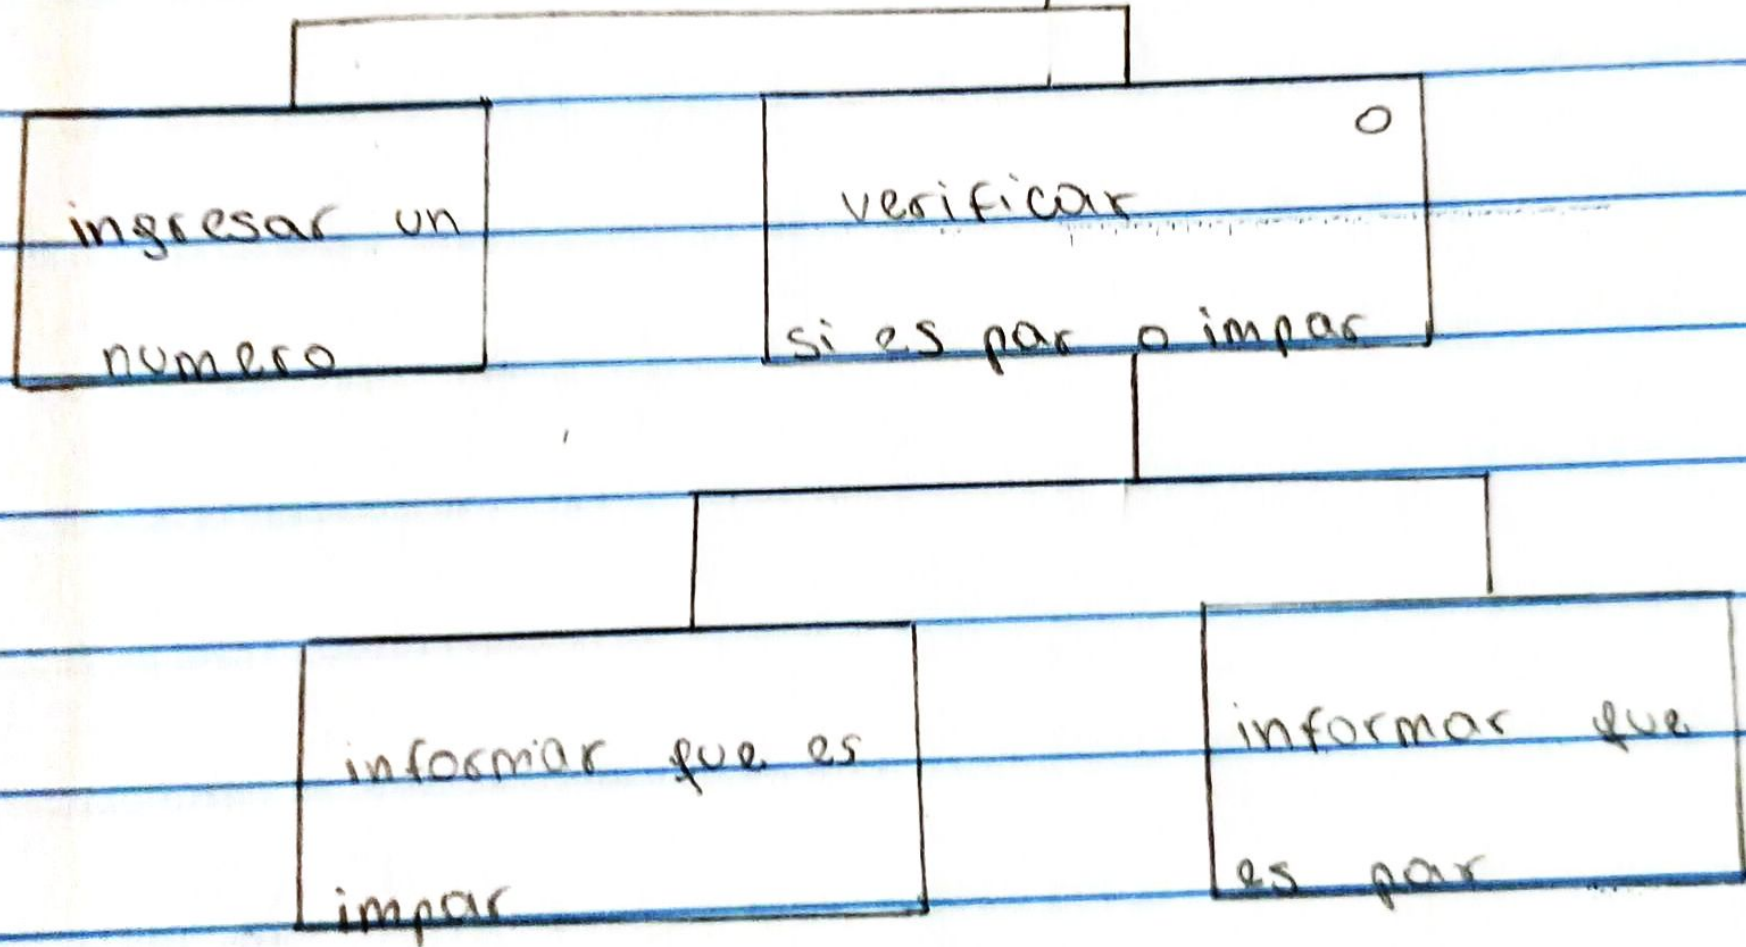 ingresar un
numero
o
verificar
si es par o impar
informar que es
impar
informar que
es par